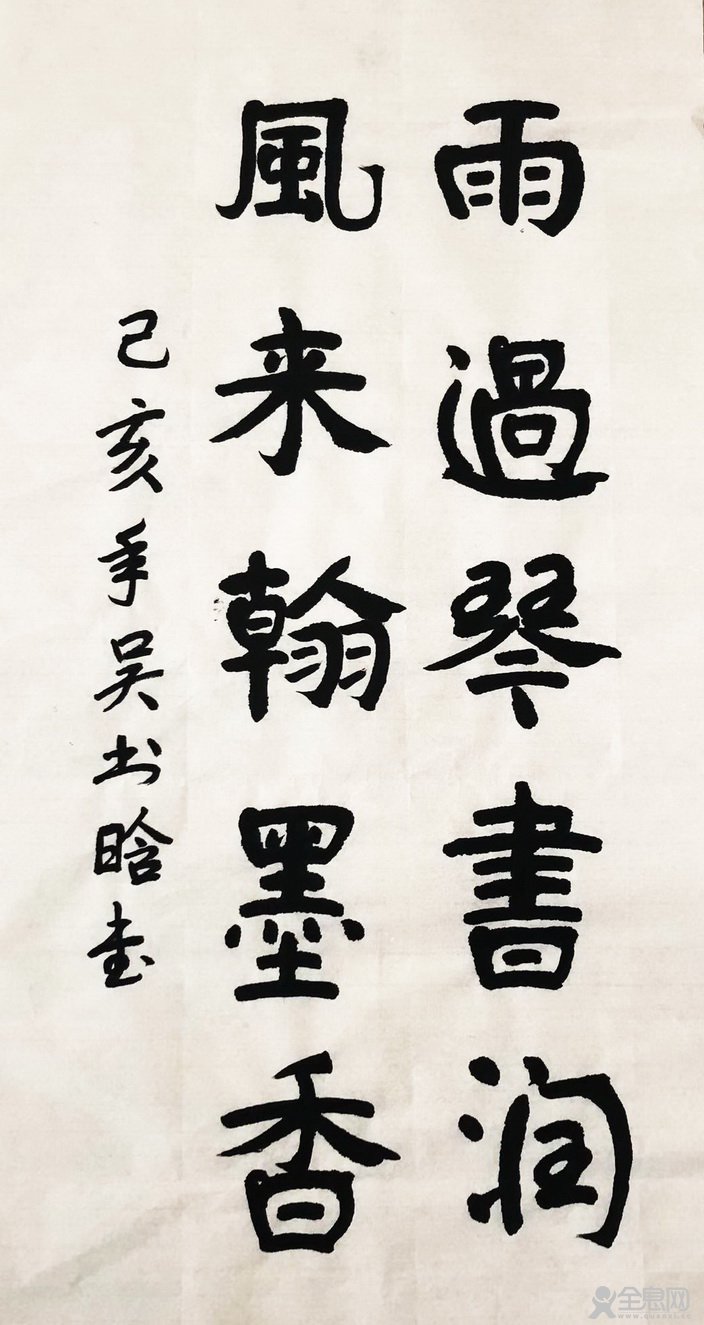 雨過琴書润
風来翰墨香
己亥年吴书晗书
全息网
www.quanxi.cc